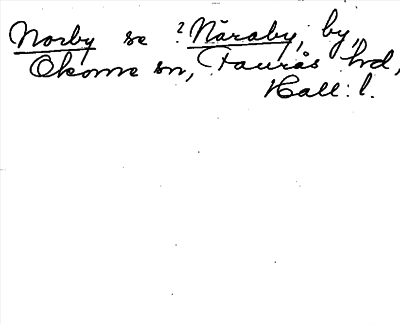 Norby se ? Näraby, by,
Okome sn, Faurås hrd,
Hall. l.